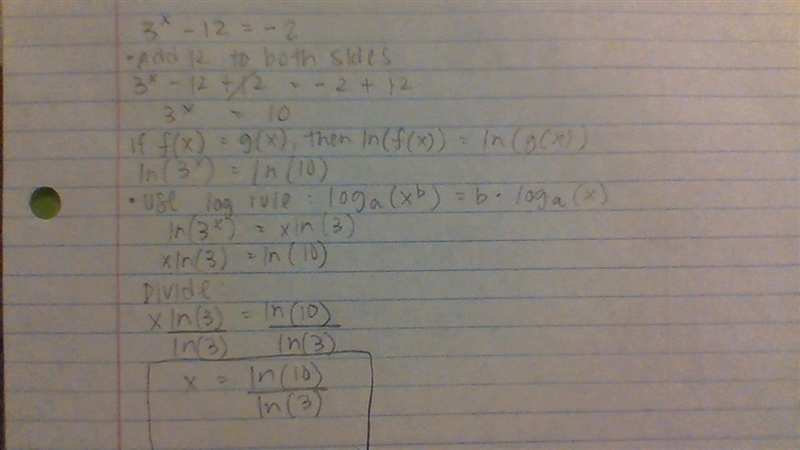 3^x - 12 = -2
• Add 12 to both sides
3^x - 12 + 12 = -2 + 12
3^x = 10
If f(x) = g(x), then ln(f(x)) = ln(g(x))
ln(3^x) = ln(10)
• use log rule: log_a(x^b) = b • log_a(x)
ln(3^x) = xln(3)
xln(3) = ln(10)
Divide
x ln(3)/ln(3) = ln(10)/ln(3)
x = ln(10)/ln(3)